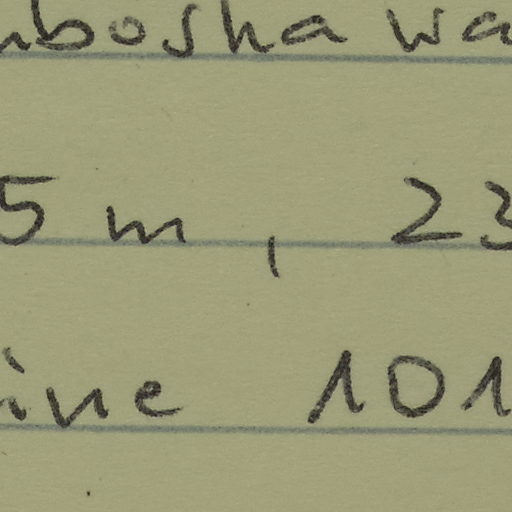 mbosha wa
5 m, 23
ine 101